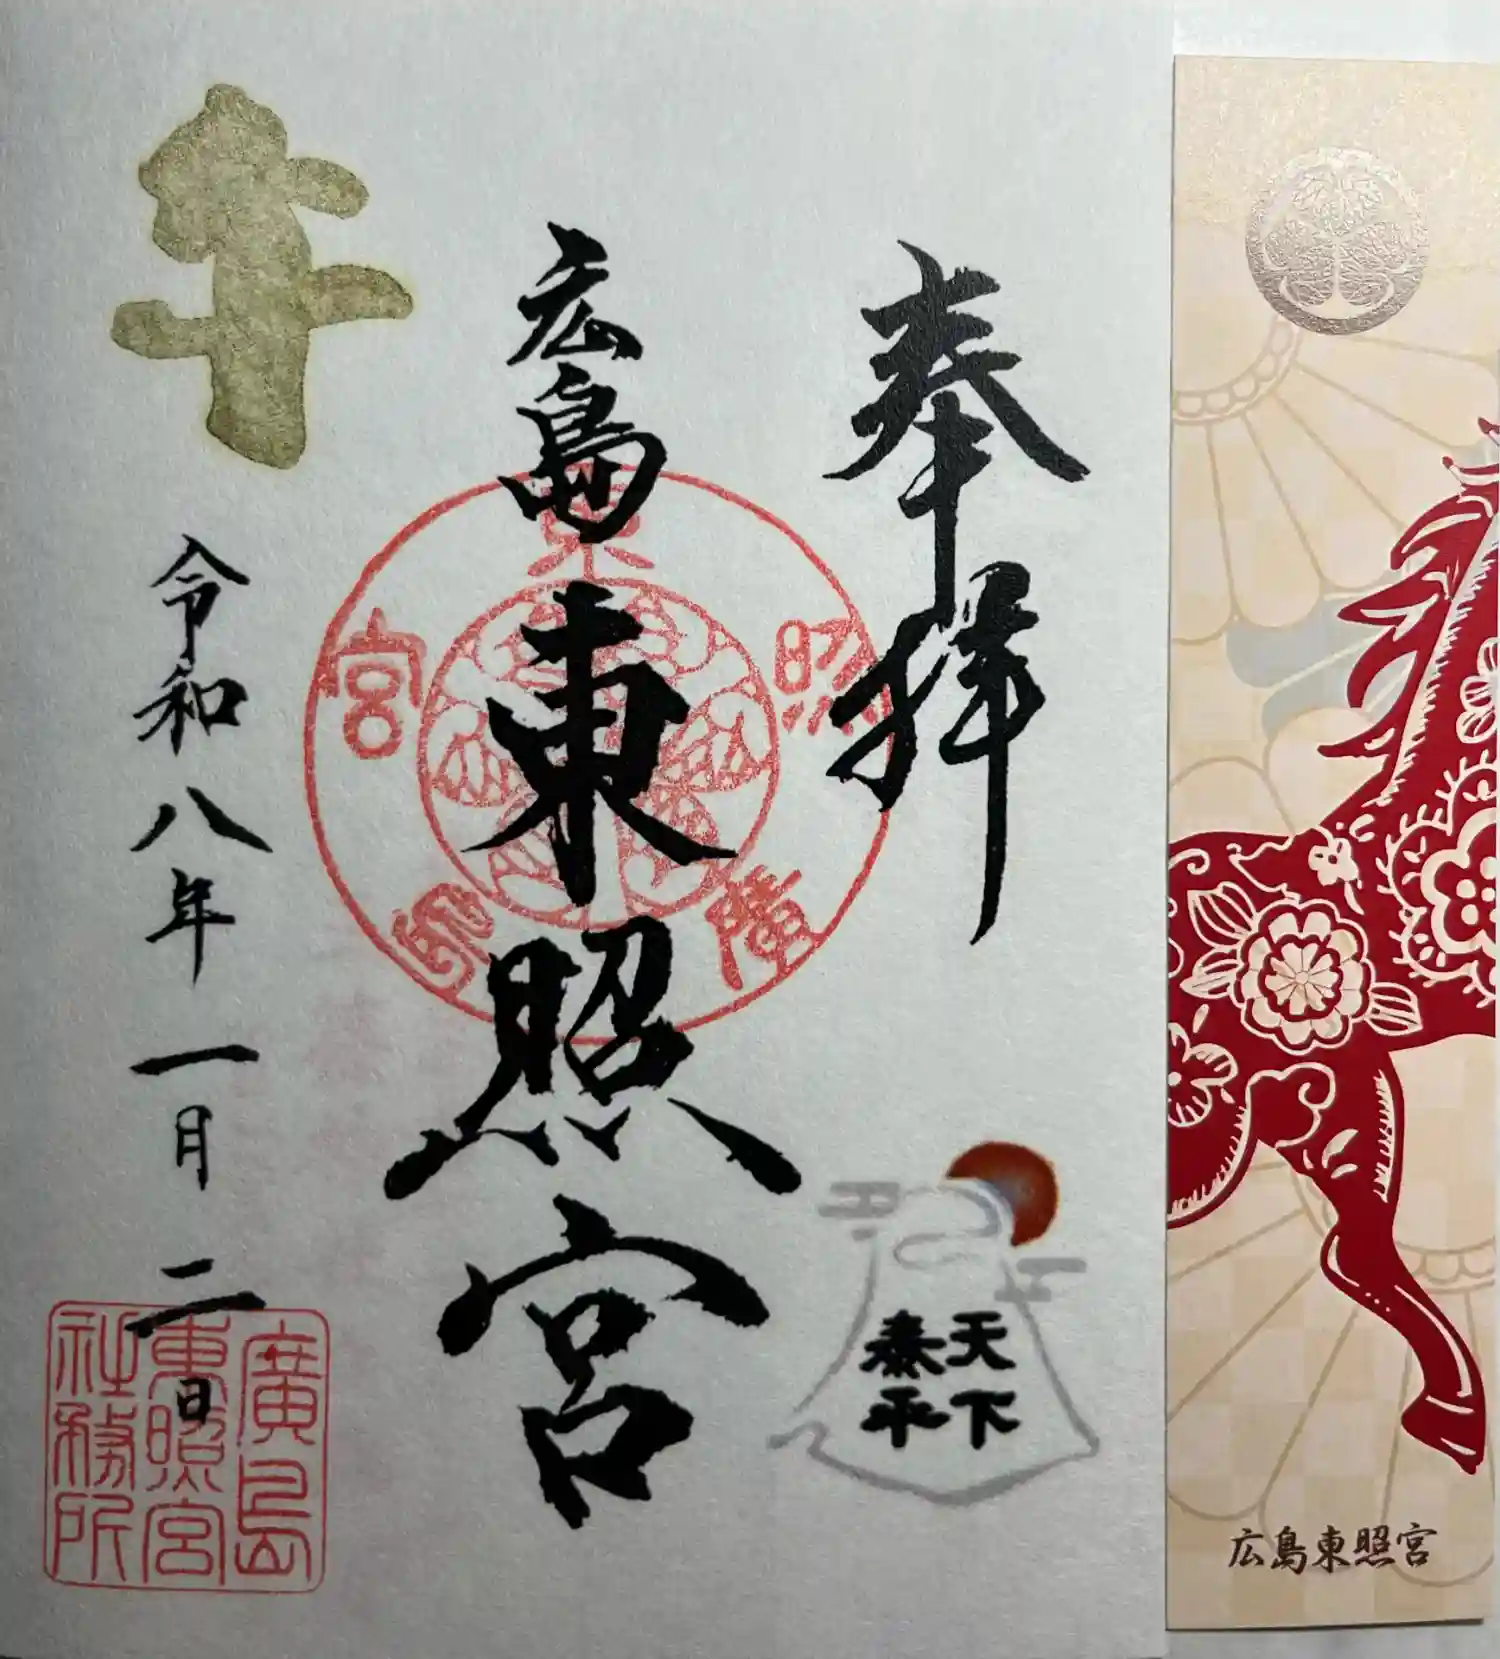 奉拝
天下
泰平
広島東照宮
東照廣島宮
午
令和八年一月二日
廣島
東照宮
社務所
広島東照宮